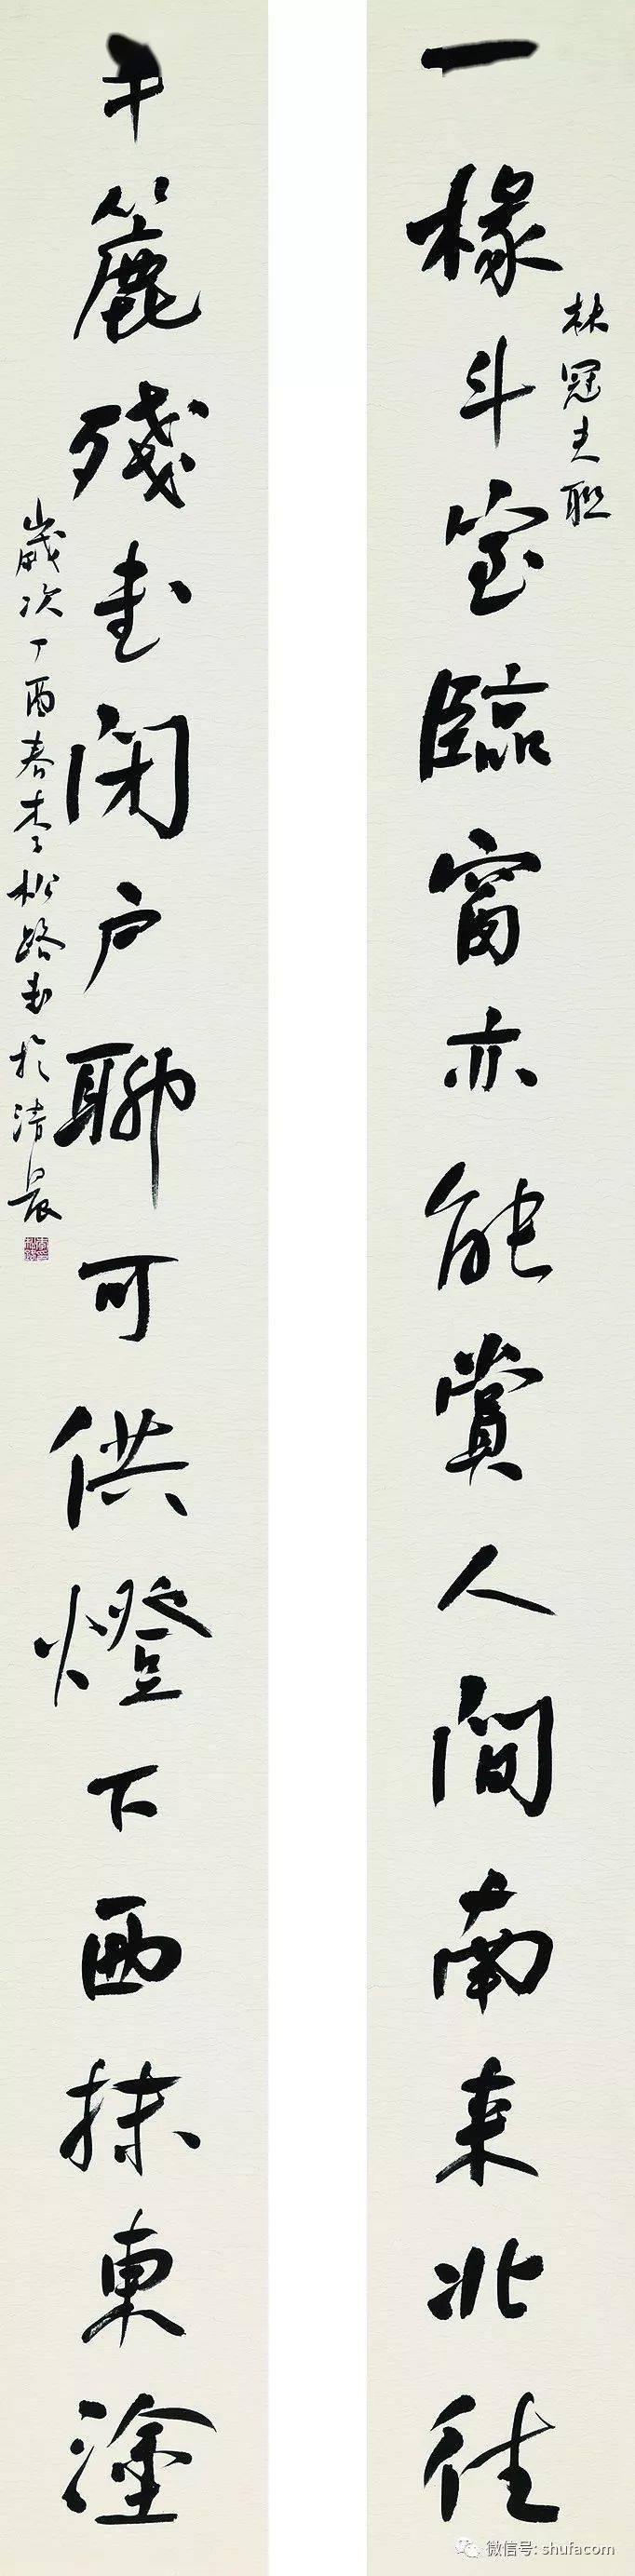 一椽斗室臨窗亦能賞人間南来北往
林冠夫聯
半簏殘書閉户聊可供燈下西抹東塗
歲次丁酉春李松路書於清晨
微信号: shufacom